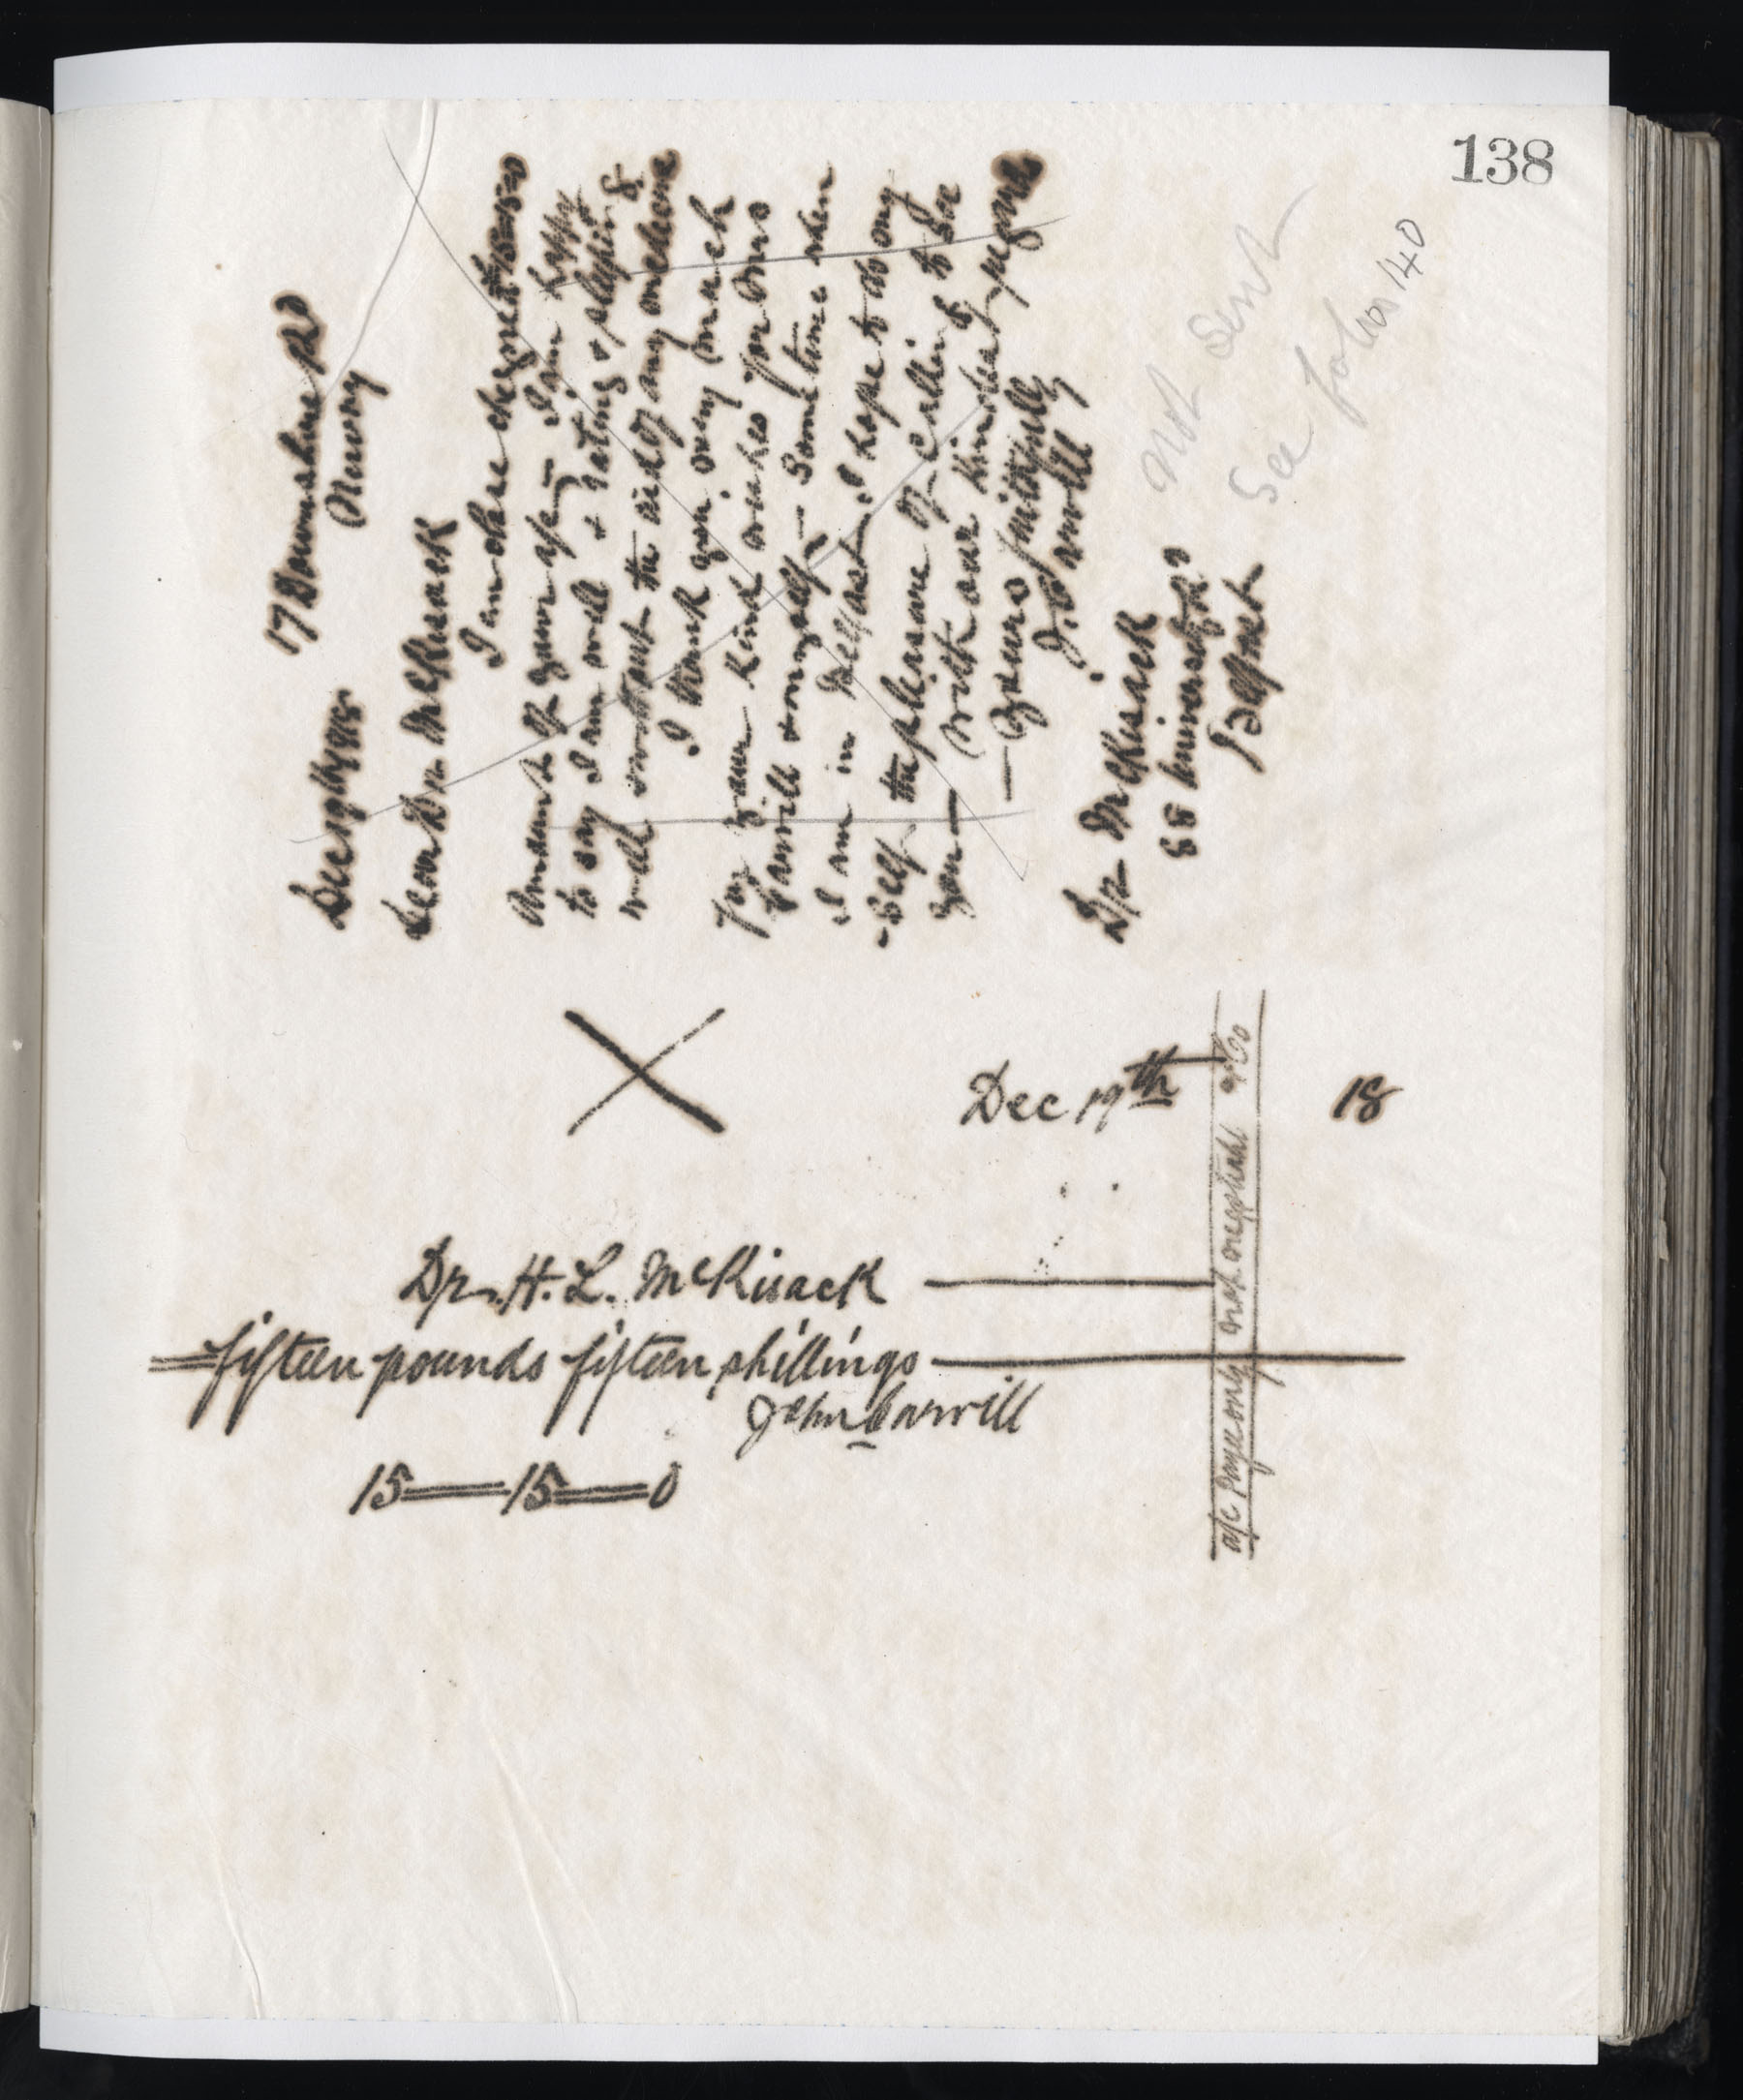 138
17 Downshire Rd
Newry
Dec 19th 1918
Dear Dr McKisack
I enclose cheque to
Amount of your a/c, I am happy
to say I am well & eating & sleeping
well without the aid of any medicine
I thank you very much
for your kind wishes for Mrs
Barrill & myself — Some time when
I am in Belfast, I hope to do my
-self the pleasure of calling to see
you —
With our kindest regards
— Yours faithfully
J. Barrill
Dr McKisack
88 University Rd
Belfast
Not Sent
See folio 140
Dec 19th 18
Dr. H. L. McKisack
fifteen pounds fifteen shillings
John Barrill
15 — 15 — 0
a/c Payee only not negotiable & Co